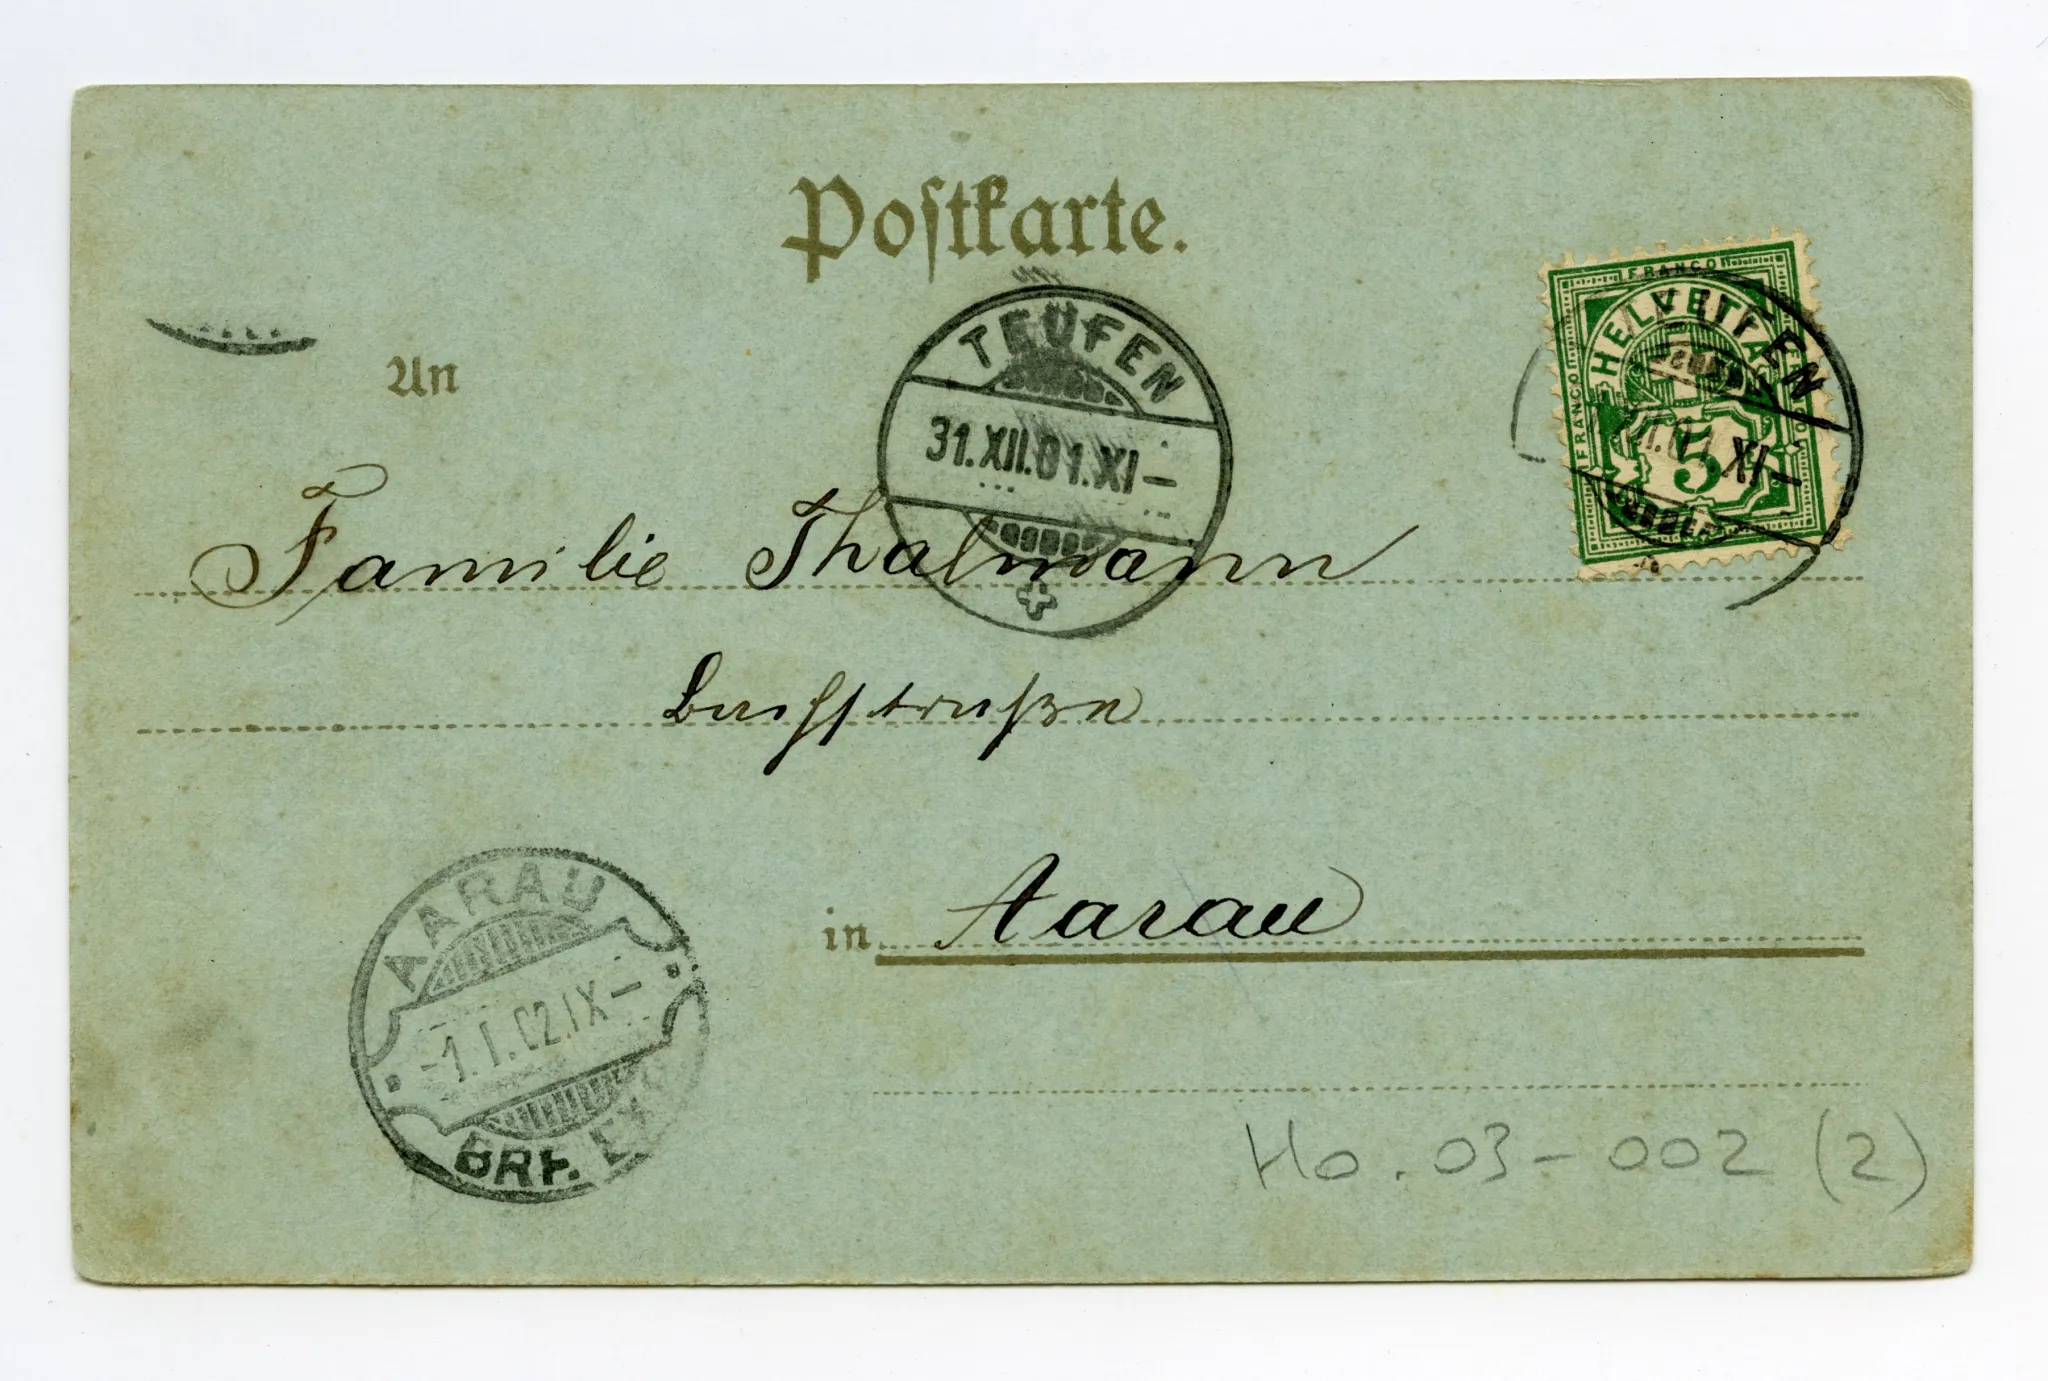 Postkarte.
An
TEUFEN
31.XII.01.XI–
FRANCO
HELVETIA
FRANCO
5
EN
XI–
Familie Thalmann
Bachstraße
in Aarau
AARAU
-1.I.02.IX–
BRF. EX
Ho. 03-002 (2)